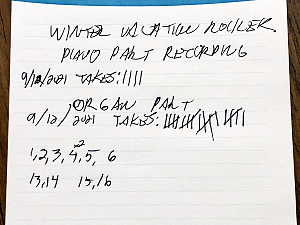 WINTER VACATION
PIANO PART RECORDING
9/12/2021 TAKES: ||||
ORGAN PART
9/12/2021 TAKES:
1,2,3,4,5, 6
13,14 15,16